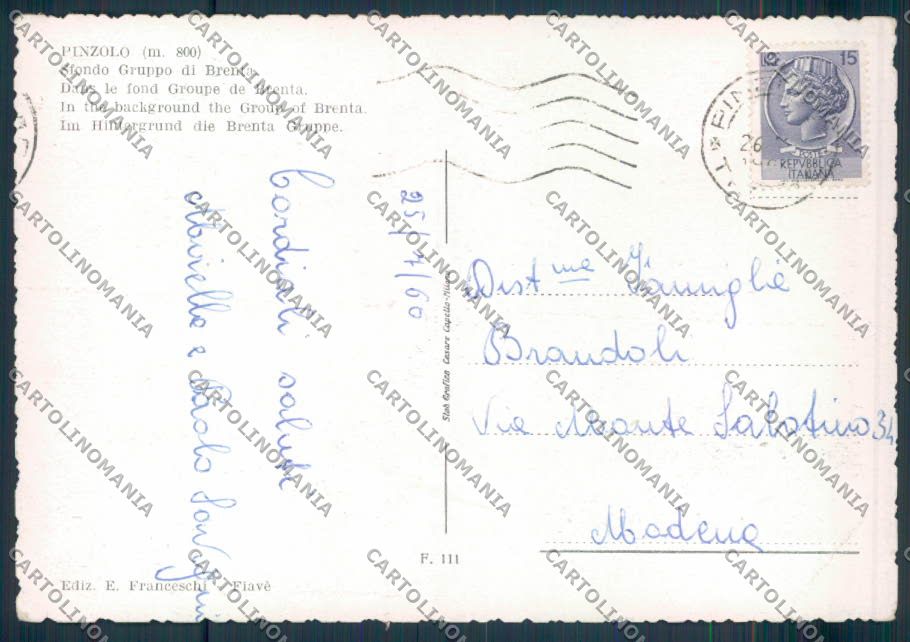 PINZOLO (m. 800)
Sfondo Gruppo di Brenta.
Dans le fond Groupe de Brenta.
In the background the Group of Brenta.
Im Hintergrund die Brenta Gruppe.
15
REPVBBLICA
ITALIANA
25/7/60
Cordiali saluti
e Paolo
Dist.me Famiglia
Brandoli
Via Monte Sabotino 34
Modena
Stab Grafico Cesare Capello-Milano
F. 111
Ediz. E. Franceschi - Fiavè
CARTOLINOMANIA